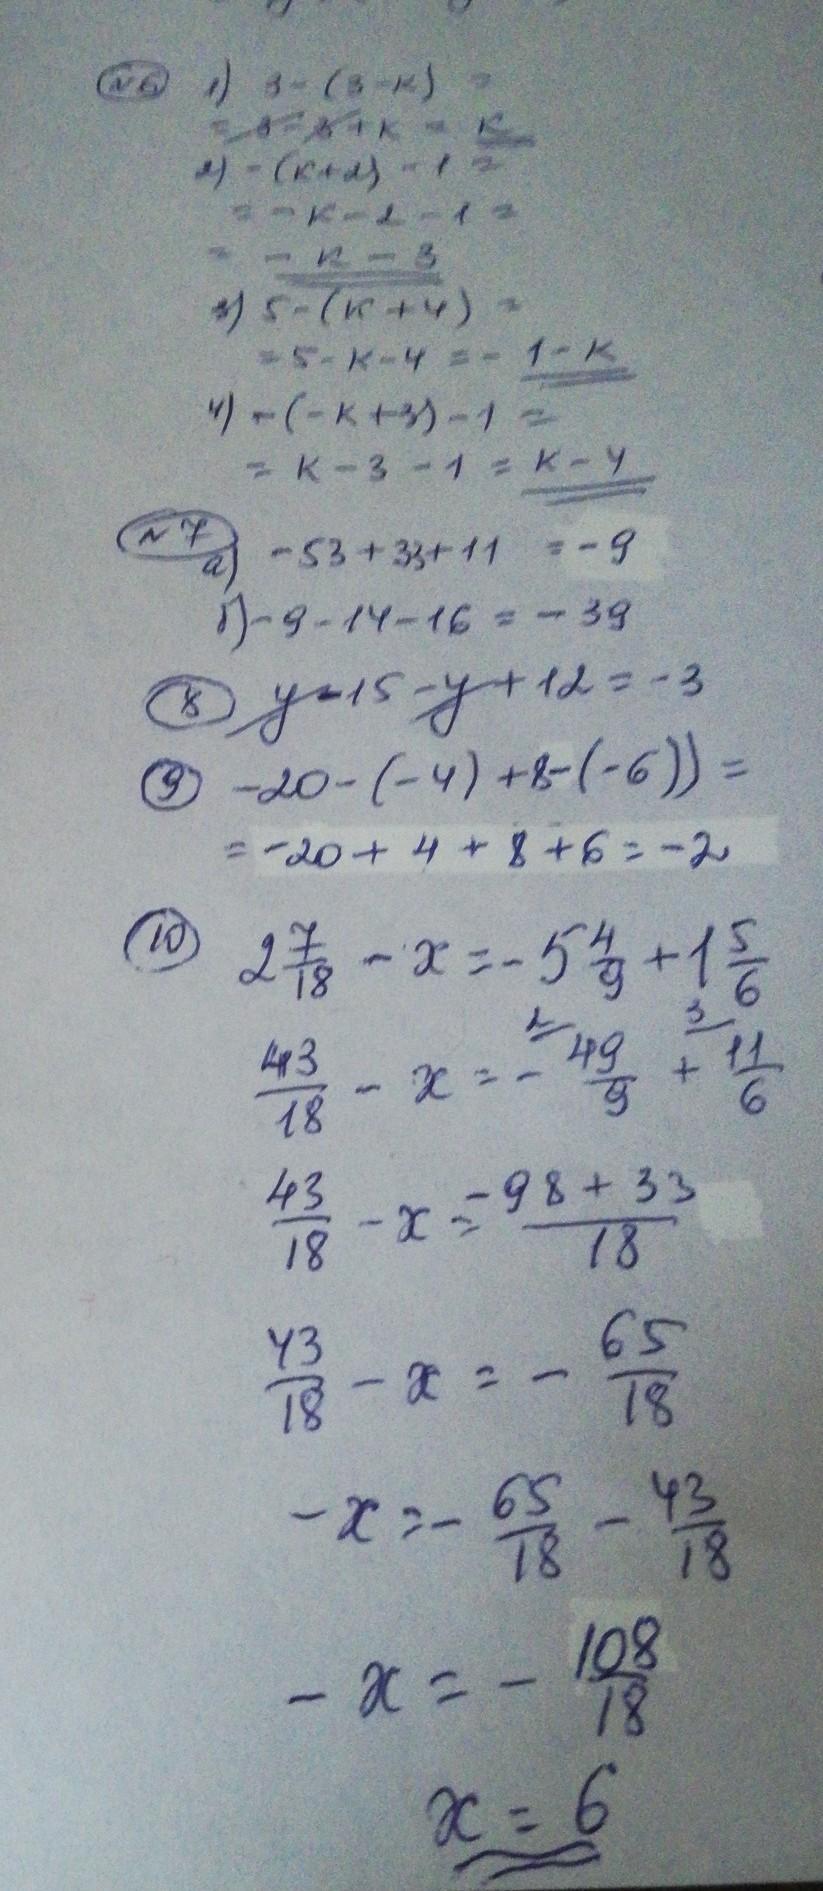 №6 1) 3-(3-к) =
= 3-3+к = к
2) -(к+2) -1 =
= -к-2-1=
= -к-3
3) 5-(к+4) =
=5-к-4 =- 1-к
4) -(-к+3)-1 =
= к-3-1= к-4
№7
а) -53+33+11 =-9
б)-9-14-16=-39
8 y-15-y+12=-3
9 -20-(-4)+8-(-6))=
=-20+4+8+6=-2
10 2 7/18 - x =-5 4/9 +1 5/6
43/18 - x =- 2 49/9 + 3 11/6
43/18 - x = -98+33/18
43/18 - x = - 65/18
-x=- 65/18 - 43/18
-x=- 108/18
x=6